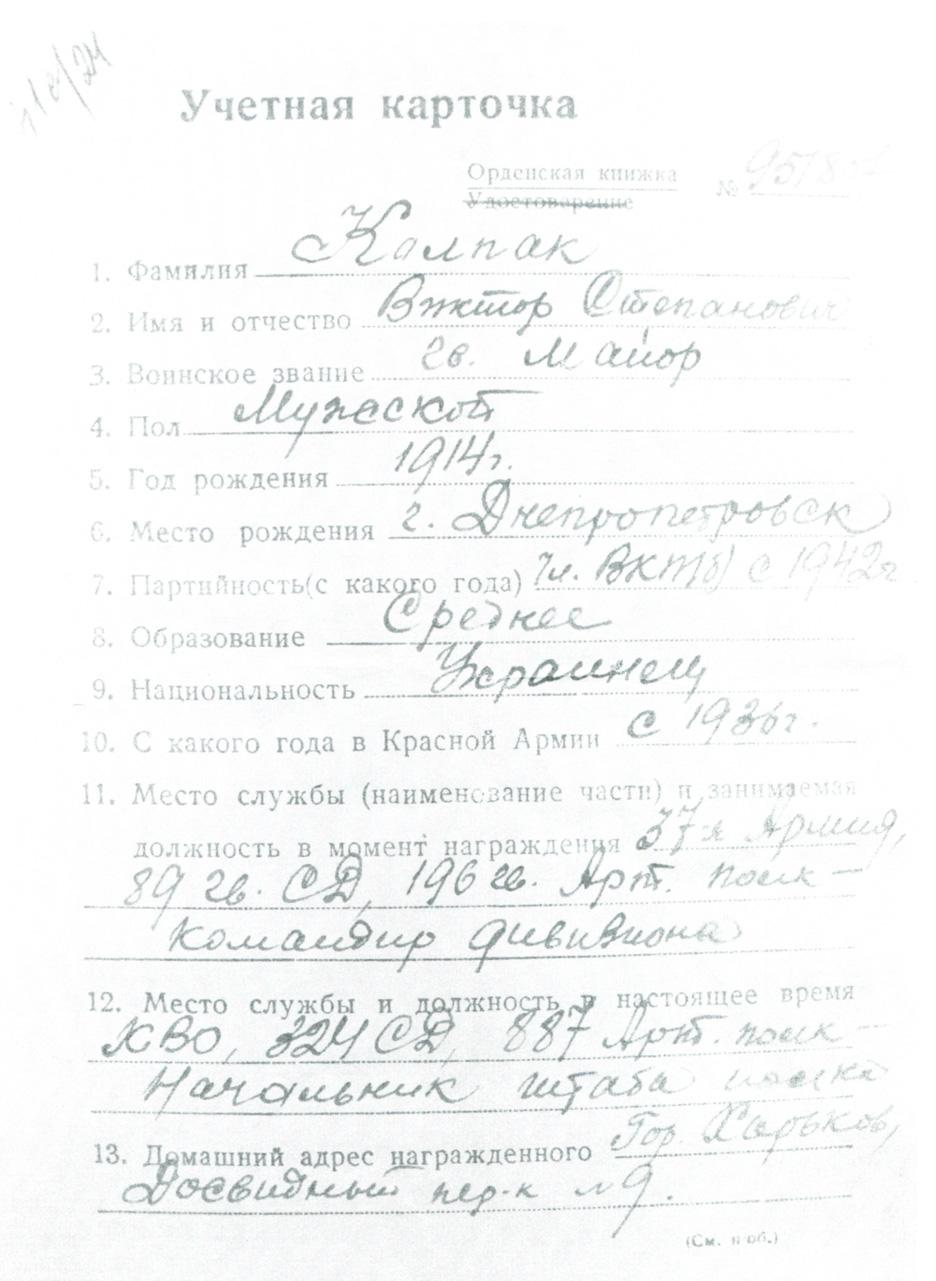 Учетная карточка
Орденская книжка
Удостоверение
№ 957807
1. Фамилия Колпак
2. Имя и отчество Виктор Степанович
3. Воинское звание Гв. Майор
4. Пол Мужской
5. Год рождения 1914г.
6. Место рождения г. Днепропетровск
7. Партийность(с какого года) Чл. ВКП(б) с 1942г
8. Образование Среднее
9. Национальность Украинец
10. С какого года в Красной Армии с 1936г.
11. Место службы (наименование части) и занимаемая
должность в момент награждения 37-я Армия,
89 гв. СД, 196 гв. Арт. полк —
Командир дивизиона
12. Место службы и должность в настоящее время
ХВО, 324 СД, 887 Арт. полк —
Начальник штаба полка
13. Домашний адрес награжденного Гор. Харьков,
пер-к № 9.
(См. н об.)